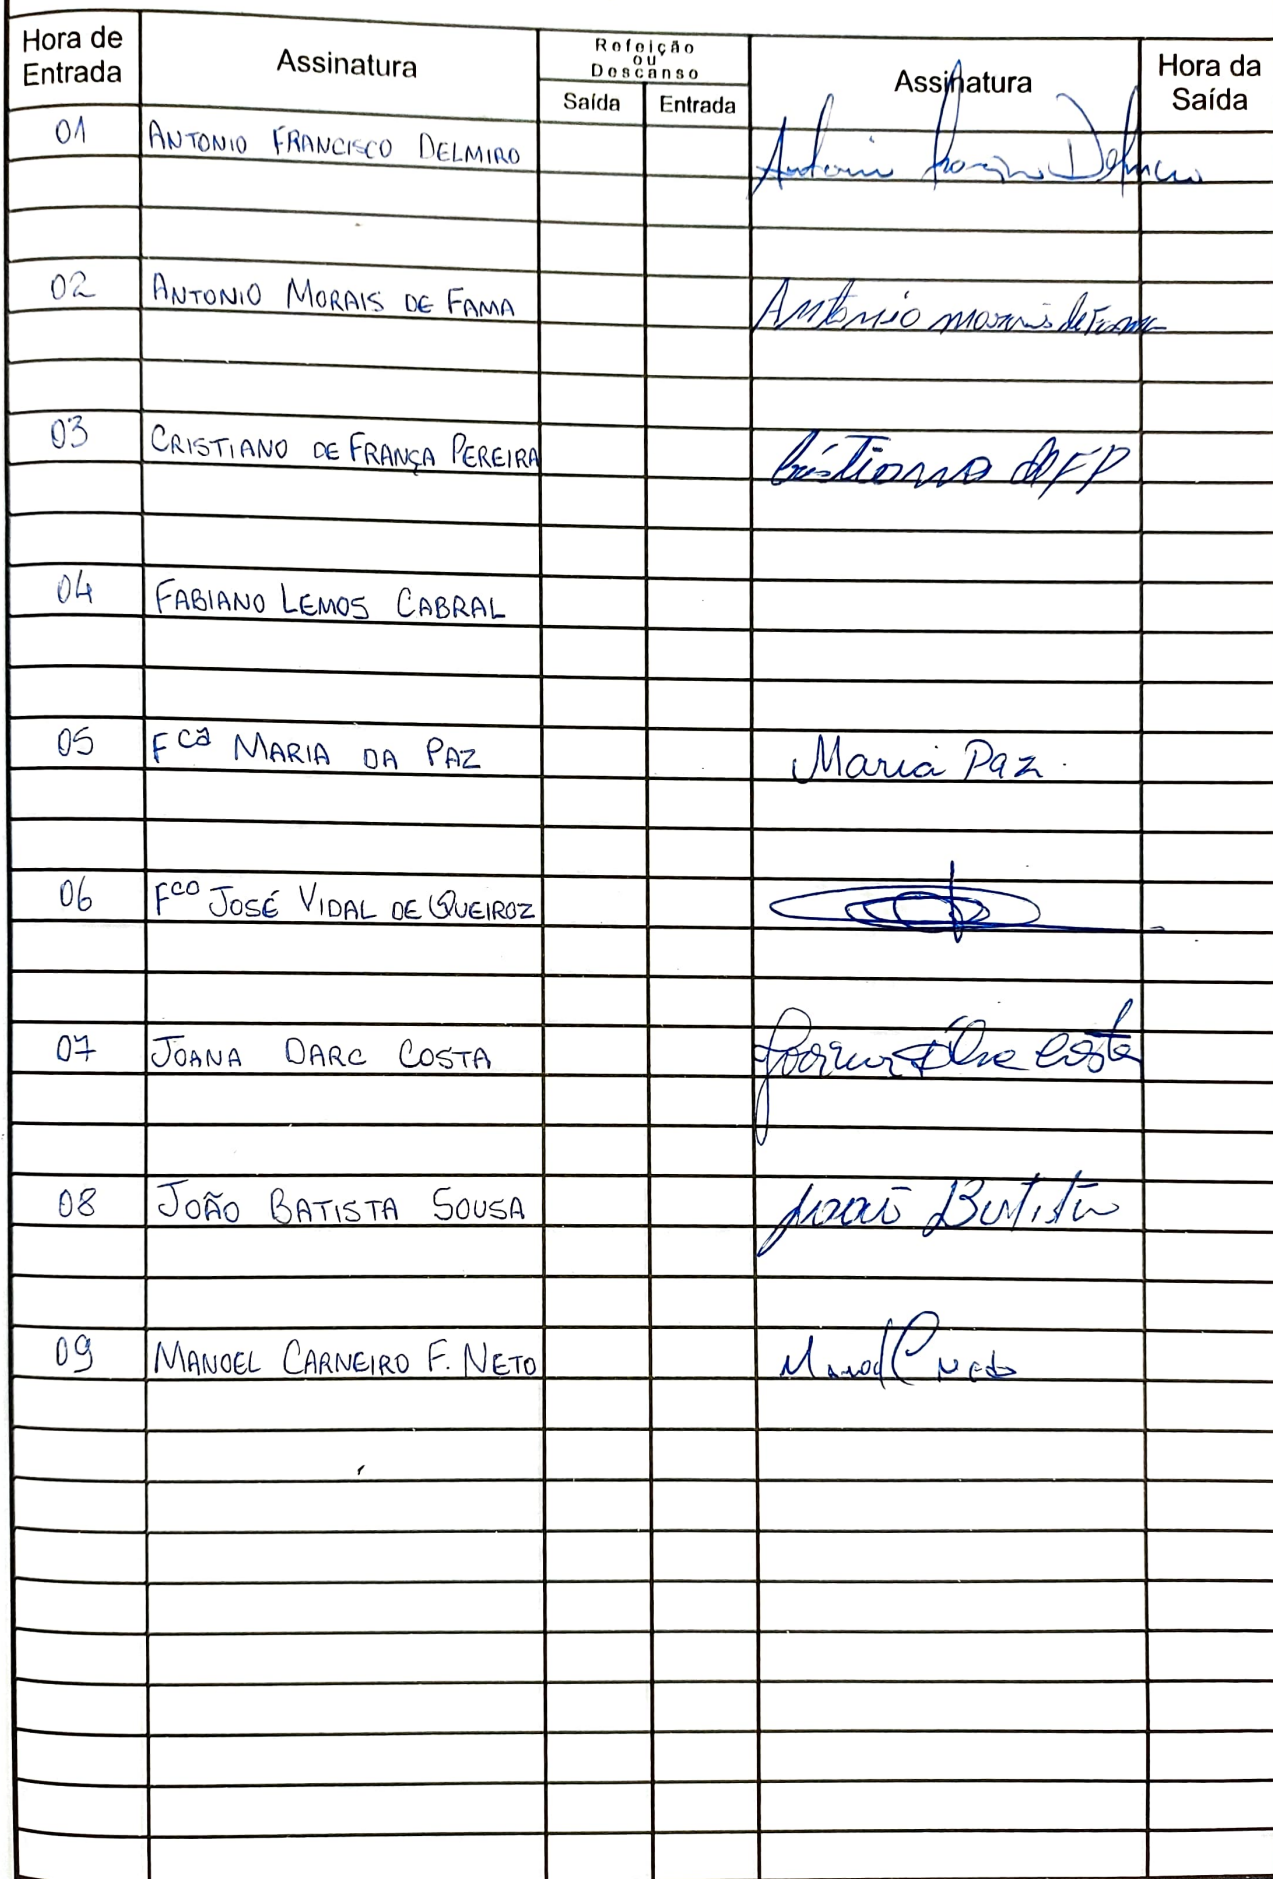 Hora de Entrada Assinatura Refeição ou Descanso Saída Entrada Assinatura Hora da Saída
01 ANTONIO FRANCISCO DELMIRO Antonio Francisco Delmiro
02 ANTONIO MORAIS DE FAMA Antonio morais de Fama
03 CRISTIANO DE FRANÇA PEREIRA Cristiano dFP
04 FABIANO LEMOS CABRAL
05 Fcª MARIA DA PAZ Maria Paz.
06 Fco JOSÉ VIDAL DE QUEIROZ
07 JOANA DARC COSTA Joana Darc Costa
08 JOÃO BATISTA SOUSA João Batista
09 MANOEL CARNEIRO F. NETO Manoel C Neto